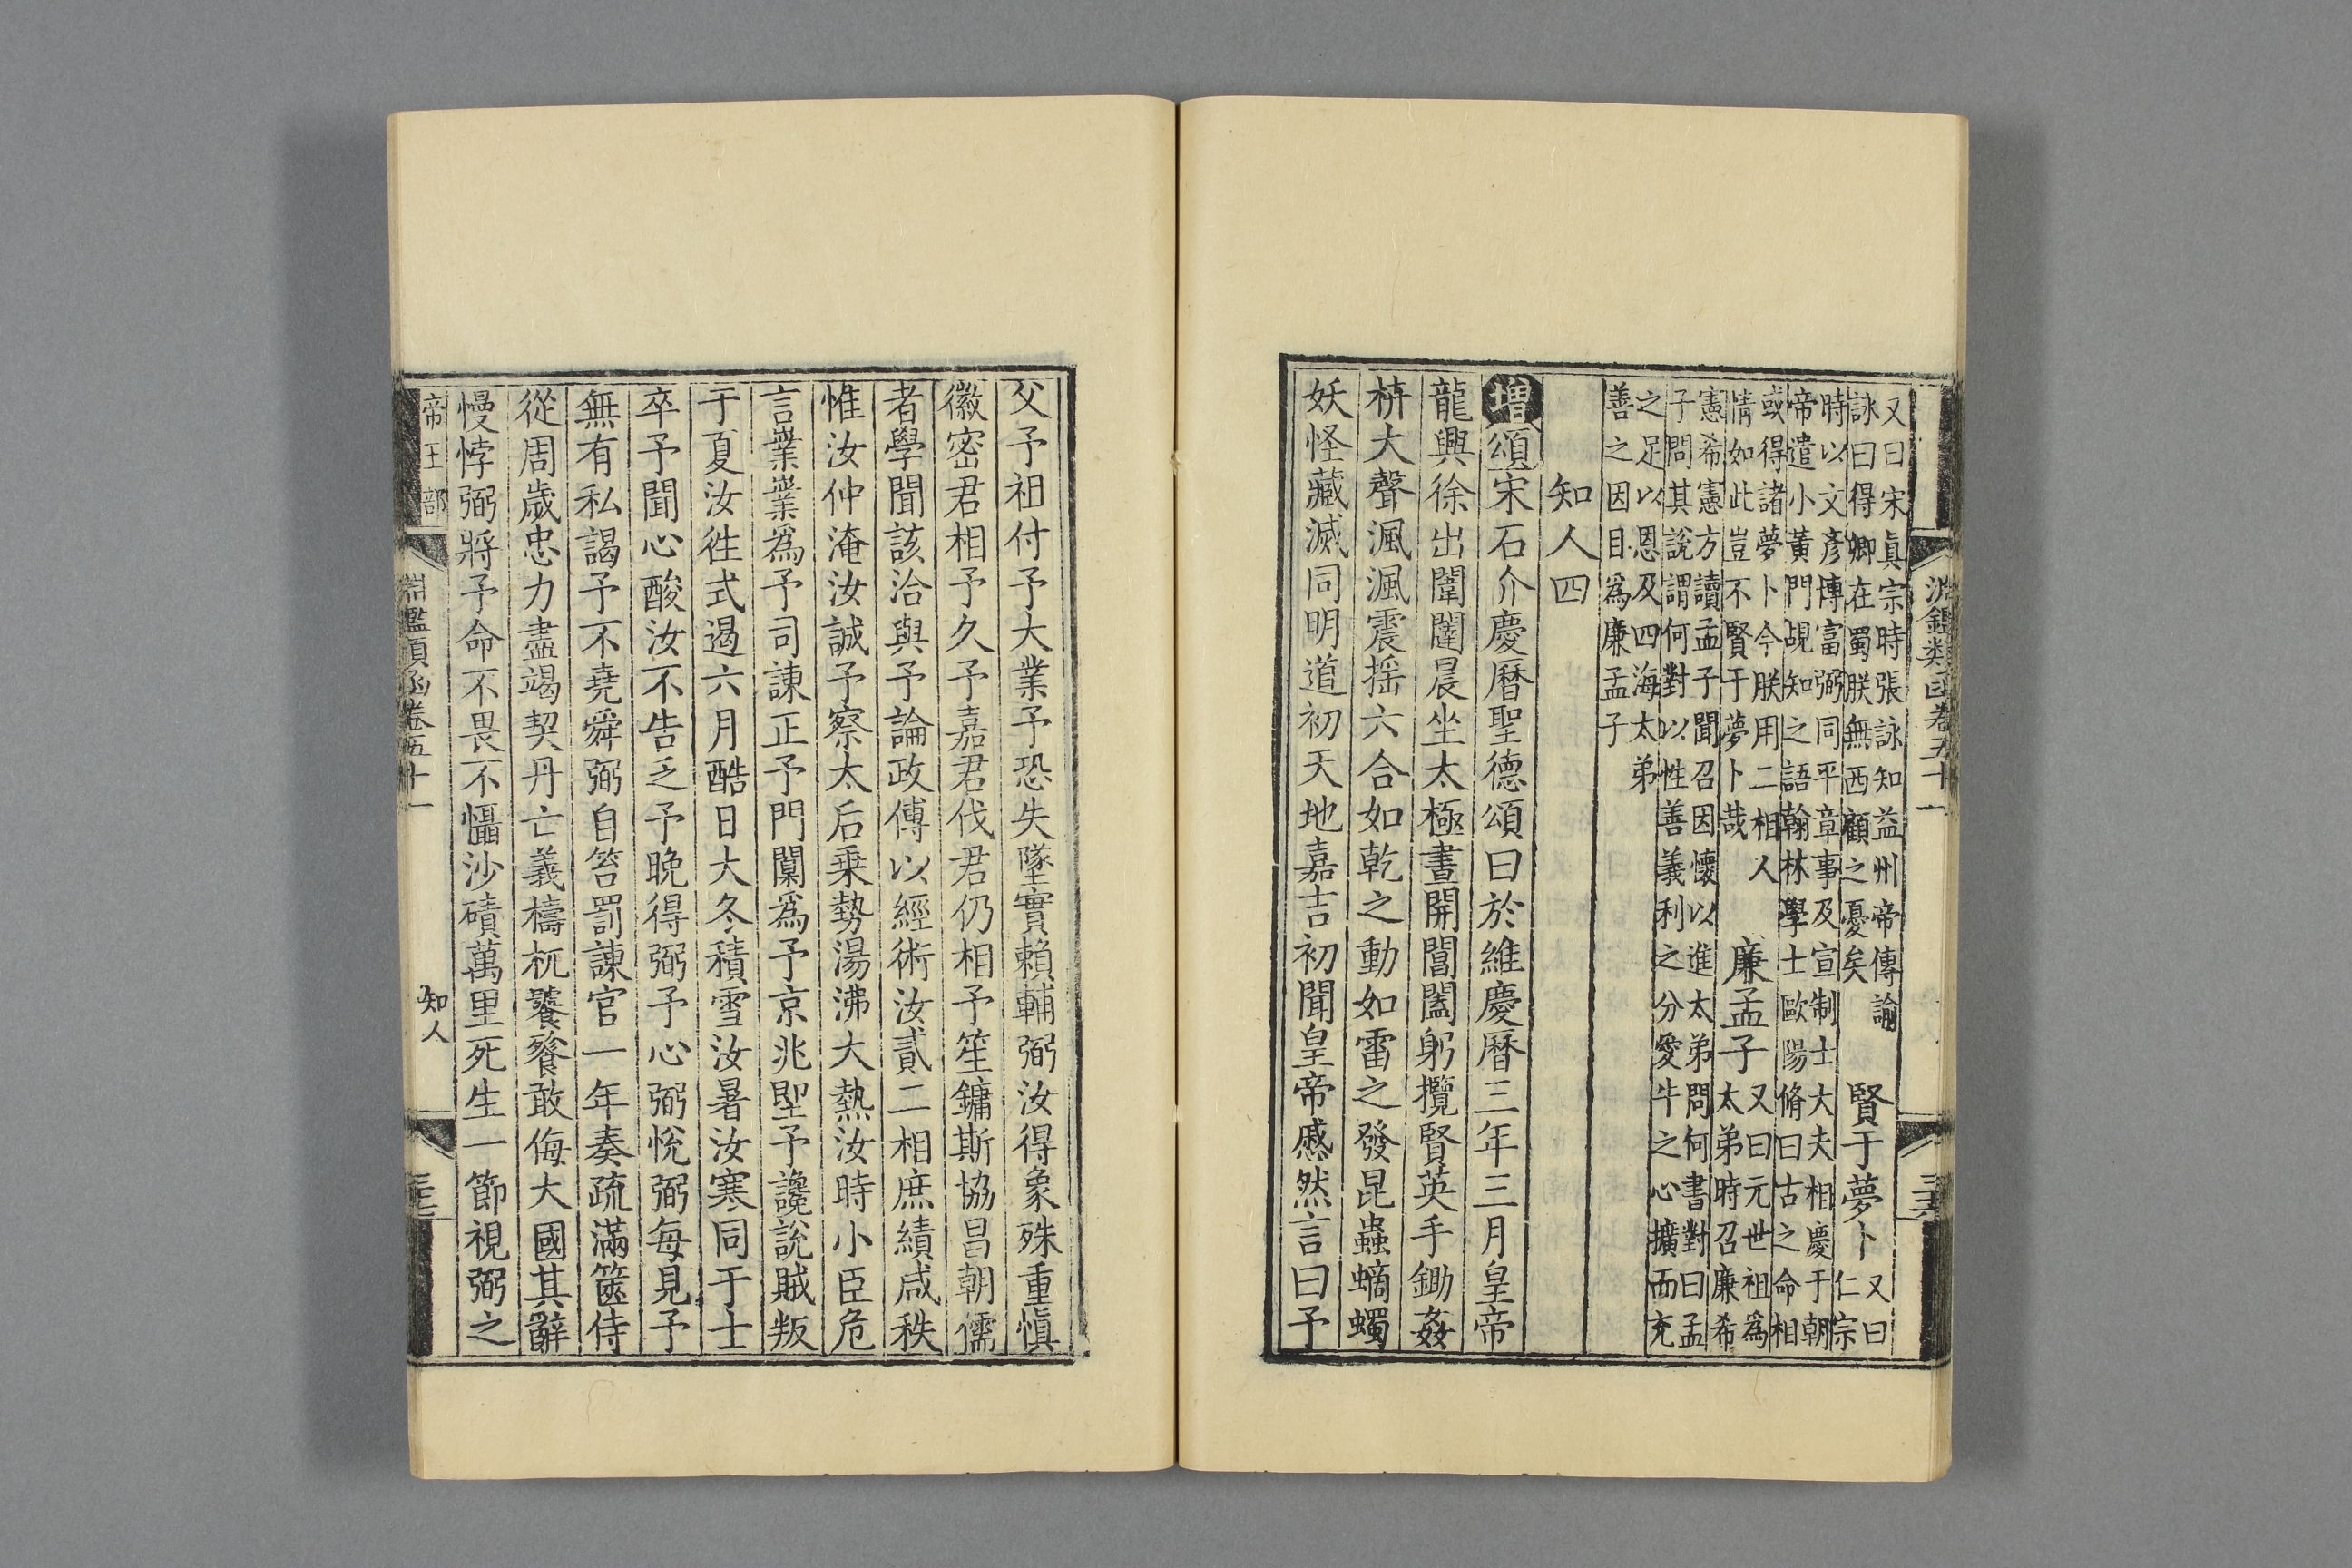 淵鑑類函卷五十一 三十六
又曰宋真宗時張詠知益州帝傳諭
詠曰得卿在蜀朕無西顧之憂矣
賢于夢卜
又曰
仁宗
時以文彥博富弼同平章事及宣制士大夫相慶于朝
帝遣小黃門覘知之語翰林學士歐陽脩曰古之命相
或得諸夢卜今朕用二相人
情如此豈不賢于夢卜哉
廉孟子
又曰元世祖爲
太弟時召廉希
憲希憲方讀孟子聞召因懷以進太弟問何書對曰孟
子問其說謂何對以性善義利之分愛牛之心擴而充
之足以恩及四海太弟
善之因目爲廉孟子
知人四
增頌宋石介慶曆聖德頌曰於維慶曆三年三月皇帝
龍興徐出闈闥晨坐太極晝開閶闔躬攬賢英手鋤姦
枿大聲渢渢震搖六合如乾之動如雷之發昆蟲蠋
妖怪藏滅同明道初天地嘉吉初聞皇帝慼然言曰予
父予祖付予大業予恐失墜實賴輔弼汝得象殊重慎
徽密君相予久予嘉君伐君仍相予笙鏞斯協昌朝儒
者學聞該洽與予論政傅以經術汝貳二相庶績咸秩
惟汝仲淹汝誠予察太后乗勢湯沸大熱汝時小臣危
言業業爲予司諫正予門闑爲予京兆堲予讒說賊叛
于夏汝徃式遏六月酷日大冬積雪汝暑汝寒同于士
卒予聞心酸汝不告乏予晚得弼予心弼悅弼每見予
無有私謁予不堯舜弼自笞罰諫官一年奏疏滿篋侍
從周歲忠力盡竭契丹亡義檮杌饕餮敢侮大國其辭
慢悖弼將予命不畏不懾沙磧萬里死生一節視弼之
帝王部 淵鑑類函卷五十一 知人 三十七